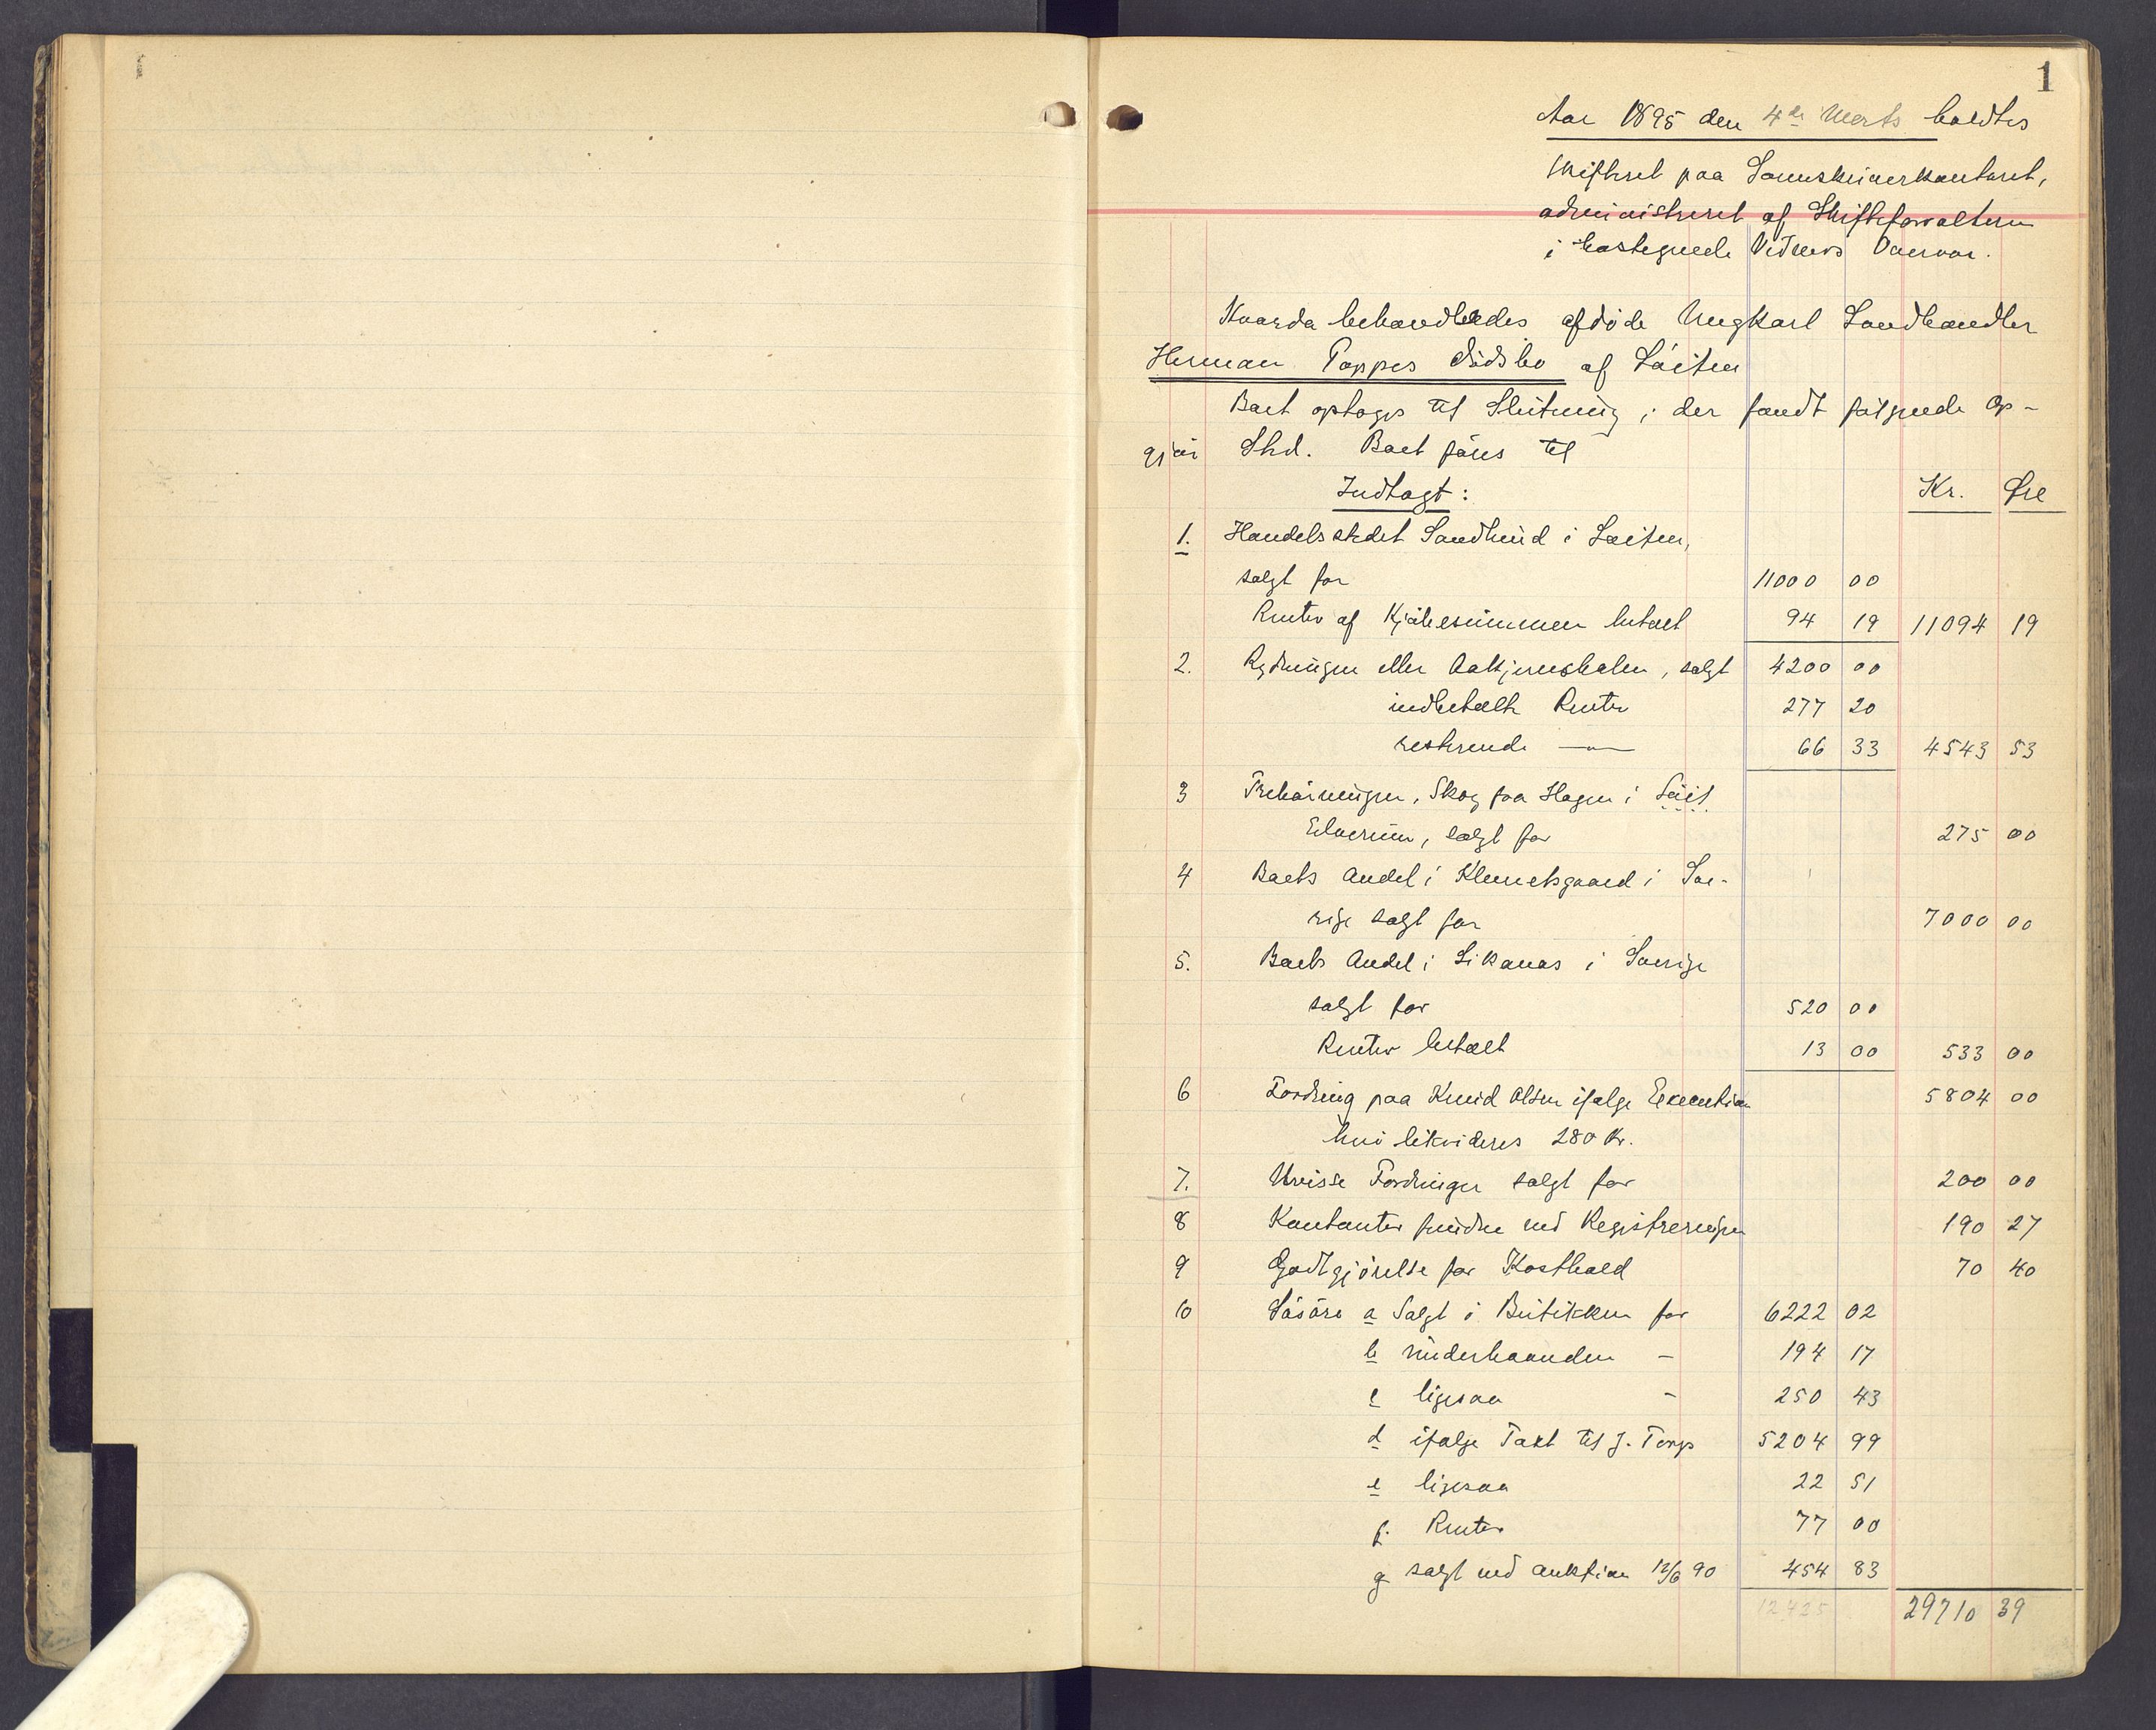 1
Aar 1895 den 4de Marts holdtes
Skifteret paa Sorenskriverkontoret,
administreret af Skifteforvalteren
i hostegnede Vidners Overvær.
Hvorda behandledes afdøde Ungkarl Landhandler
Herman Poppes Dødsbo af Løiten
Boet optoges til Slutning; der fandt følgende Op-
gjør Sted. Boet føres til
Indtægt: Kr. Øre
1. Handelsstedet Sandlund i Løiten,
salgt for 11000 00
Renter af Kjøbesummen betalt 94 19 11094 19
2. Rydningen eller Aakjernshalen, salgt 4200 00
indbetalte Renter 277 20
resterende —„— 66 33 4543 53
3 Skog paa Hagen i Løit.
Elverum, salgt for 275 00
4 Boets Andel i Klemetsgaard i Sve-
rige salgt for 7000 00
5. Boets Andel i Likanas i Sverige
salgt for 520 00
Renter betalt 13 00 533 00
6 Fordring paa Knud Olsen ifølge Execution 5804 00
hvori likvideres 280 Kr.
7. Uvisse Fordringer salgt for 200 00
8 Kontanter fundne ved Registreringen 190 27
9 Godtgjørelse for Kosthold 70 40
10 Løsøre a Salgt i Butikken for 6222 02
b underhaanden - 194 17
c ligesaa - 250 43
d ifølge Takt til J. Torp 5204 99
e ligesaa 22 51
f. Renter 77 00
g salgt ved Auktion 12/6 90 454 83
12425 29710 39